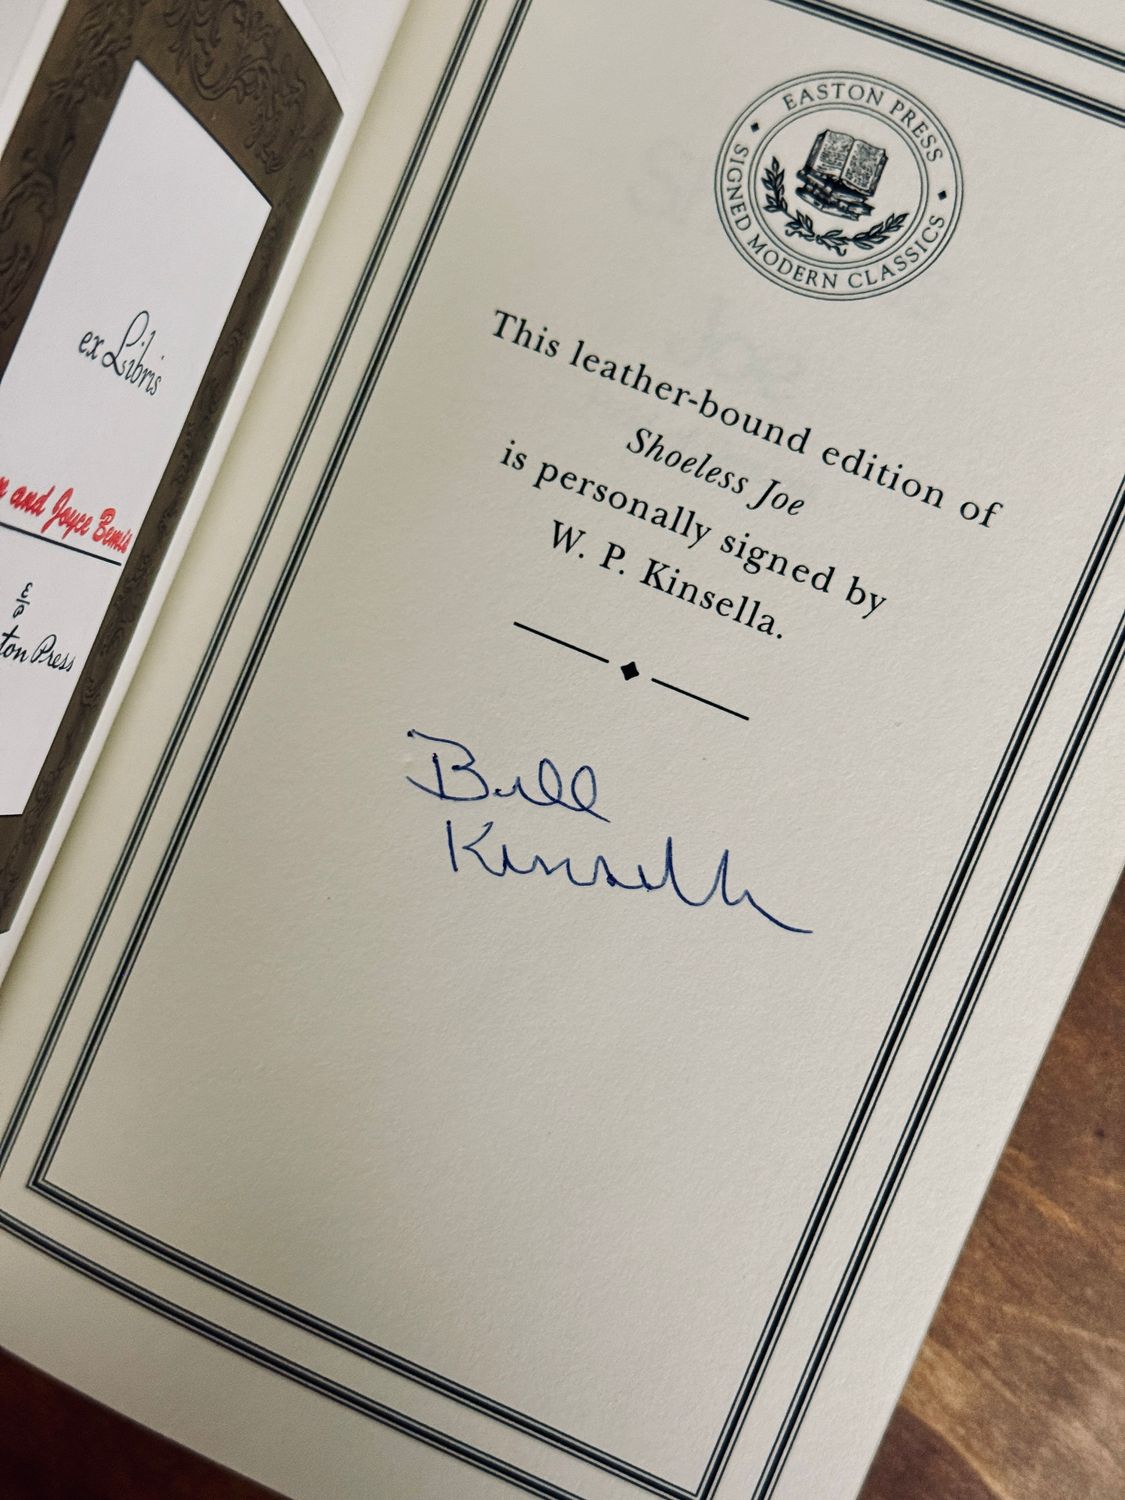 ex Libris
and Joyce Bemis
E
P
ton Press
EASTON PRESS
SIGNED MODERN CLASSICS
This leather-bound edition of
Shoeless Joe
is personally signed by
W. P. Kinsella.
Bill
Kinsella